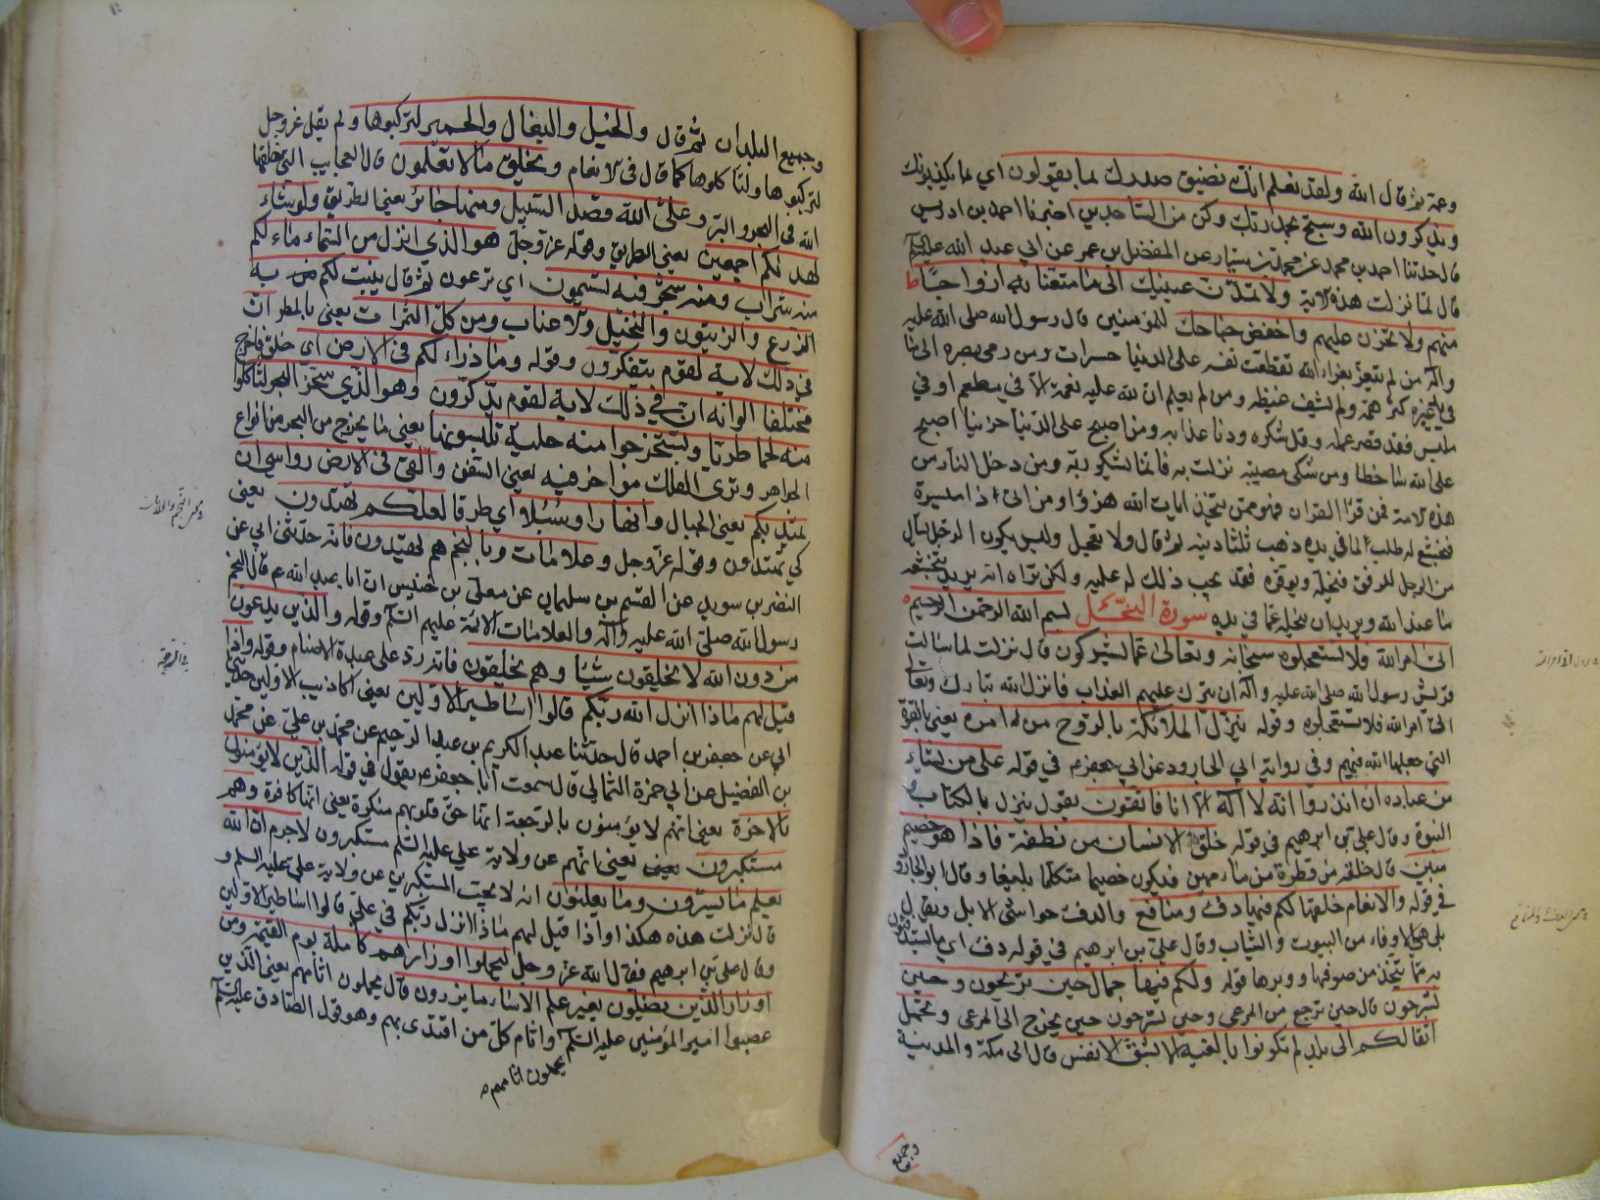 وعترته ثم قال الله ولقد نعلم انك يضيق صدرك بما يقولون اي بما يكذبونك
ويذكرون الله وسبح بحمد ربك وكن من الساجدين اخبرنا احمد بن ادريس
قال حدثنا احمد بن محمد عن محمد بن سيار عن المفضل بن عمر عن ابي عبد الله عليه السلم
قال لما نزلت هذه الاية ولا تمدن عينيك الى ما متعنا به ازواجا
منهم ولا تحزن عليهم واخفض جناحك للمؤمنين قال رسول الله صلى الله عليه
واله من لم يتعز بعزاء الله تقطعت نفسه على الدنيا حسرات ومن رمى ببصره الى ما
في يد غيره كثر همه ولم يشف غيظه ومن لم يعلم ان لله عليه نعمة الا في مطعم او في
ملبس فقد قصر عمله وقل شكره ودنا عذابه ومن اصبح على الدنيا حزينا اصبح
على الله ساخطا ومن شكى مصيبة نزلت به فانما يشكو ربه ومن دخل النار من
هذه الامة فمن قرأ القران فهو ممن يتخذ ايات الله هزؤا ومن اتى ذا ميسرة
فتخشع له طلب لما في يده ذهب ثلثا دينه ثم قال ولا تعجل وليس يكون الرجل ينال
من الرجل المرفق فيجله ويوقره فقد يجب ذلك له عليه ولكن تراه انه يريد بتخشعه
ما عند الله ويريد ان يختله عما في يده سورة النحل بسم الله الرحمن الرحيم
اتى امر الله فلا تستعجلوه سبحانه وتعالى عما يشركون قال نزلت لما سالت
قريش رسول الله صلى الله عليه واله ان ينزل عليهم العذاب فانزل الله تبارك وتعالى
اتى امر الله فلا تستعجلوه وقوله ينزل الملائكة بالروح من امره يعني بالقوة
التي جعلها الله فيهم وفي رواية ابي الجارود عن ابي جعفر ع في قوله على من يشاء
من عباده ان انذروا انه لا اله الا انا فاتقون يقول ينزل بالكتاب و
النبوة وقال علي بن ابرهيم في قوله خلق الانسان من نطفة فاذا هو خصيم
مبين قال خلقه من قطرة من ماء مهين فيكون خصيما متكلما بليغا وقال ابو الجارود
في قوله والانعام خلقها لكم فيها دفء ومنافع والدفء حواشي الابل ويقال
بل هي الاوفاء من البيوت والثياب وقال علي بن ابرهيم في قوله دفء اي ما يستدفئون
به مما يتخذ من صوفها ووبرها قوله ولكم فيها جمال حين تريحون وحين
تسرحون قال حين ترجع من المرعى وحين تسرحون حين يخرج الى المرعى وتحمل
اثقالكم الى بلد لم تكونوا بالغيه الا بشق الانفس قال الى مكة والمدينة
وجميع
وجميع البلدان ثم قال والخيل والبغال والحمير لتركبوها ولم يقل عز وجل
لتركبوها ولتاكلوها كما قال في الانعام ويخلق ما لا تعلمون قال العجايب التي خلقها
الله في البحر والبر وعلى الله قصد السبيل ومنها جائر يعني الطريق ولو شاء
لهديكم اجمعين يعني الطريق وقوله عز وجل هو الذي انزل من السماء ماء لكم
منه شراب ومنه شجر فيه تسيمون اي ترعون ثم قال ينبت لكم به
الزرع والزيتون والنخيل والاعناب ومن كل الثمرات يعني بالمطر ان
في ذلك لاية لقوم يتفكرون وقوله وما ذراء لكم في الارض اي خلق فاخرج
مختلفا الوانه ان في ذلك لاية لقوم يذكرون وهو الذي سخر البحر لتاكلوا
منه لحما طريا وتستخرجوا منه حلية تلبسونها يعني ما يخرج من البحر من انواع
الجواهر وترى الفلك مواخر فيه يعني السفن والقى في الارض رواسي ان
تميد بكم يعني الجبال وانهارا وسبلا اي طرقا لعلكم تهتدون يعني
كي تهتدون وقوله عز وجل وعلامات وبالنجم هم يهتدون فانه حدثني ابي عن
النضر بن سويد عن القسم بن سليمان عن معلى بن خنيس ان ابا عبد الله ع قال النجم
رسول الله صلى الله عليه واله والعلامات الائمة عليهم السلم وقوله والذين يدعون
من دون الله لا يخلقون شيئا وهم يخلقون فانه رد على عبدة الاصنام وقوله واذا
قيل لهم ماذا انزل الله ربكم قالوا اساطير الاولين يعني اكاذيب الاولين حدثني
ابي عن جعفر بن احمد قال حدثنا عبد الكريم بن عبد الرحيم عن محمد بن علي عن محمد
بن الفضيل عن ابي حمزة الثمالي قال سمعت ابا جعفر ع يقول في قوله الذين لا يؤمنون
بالاخرة يعني انهم لا يؤمنون بالرجعة انها حق قلوبهم منكرة يعني انها كافرة وهم
مستكبرون يعني انهم عن ولاية علي عليه السلم مستكبرون لا جرم ان الله
يعلم ما يسرون وما يعلنون انه لا يحب المستكبرين عن ولاية علي عليه السلم و
قال نزلت هذه هكذا واذا قيل لهم ماذا انزل ربكم في علي قالوا اساطير الاولين
وقال علي بن ابرهيم فقال الله عز وجل ليحملوا اوزارهم كاملة يوم القيمة ومن
اوزار الذين يضلون بغير علم الا ساء ما يزرون قال يحملون اثامهم يعني الذين
غصبوا امير المؤمنين عليه السلم واثام كل من اقتدى بهم وهو قول الصادق عليه السلم
يحملون اثامهم